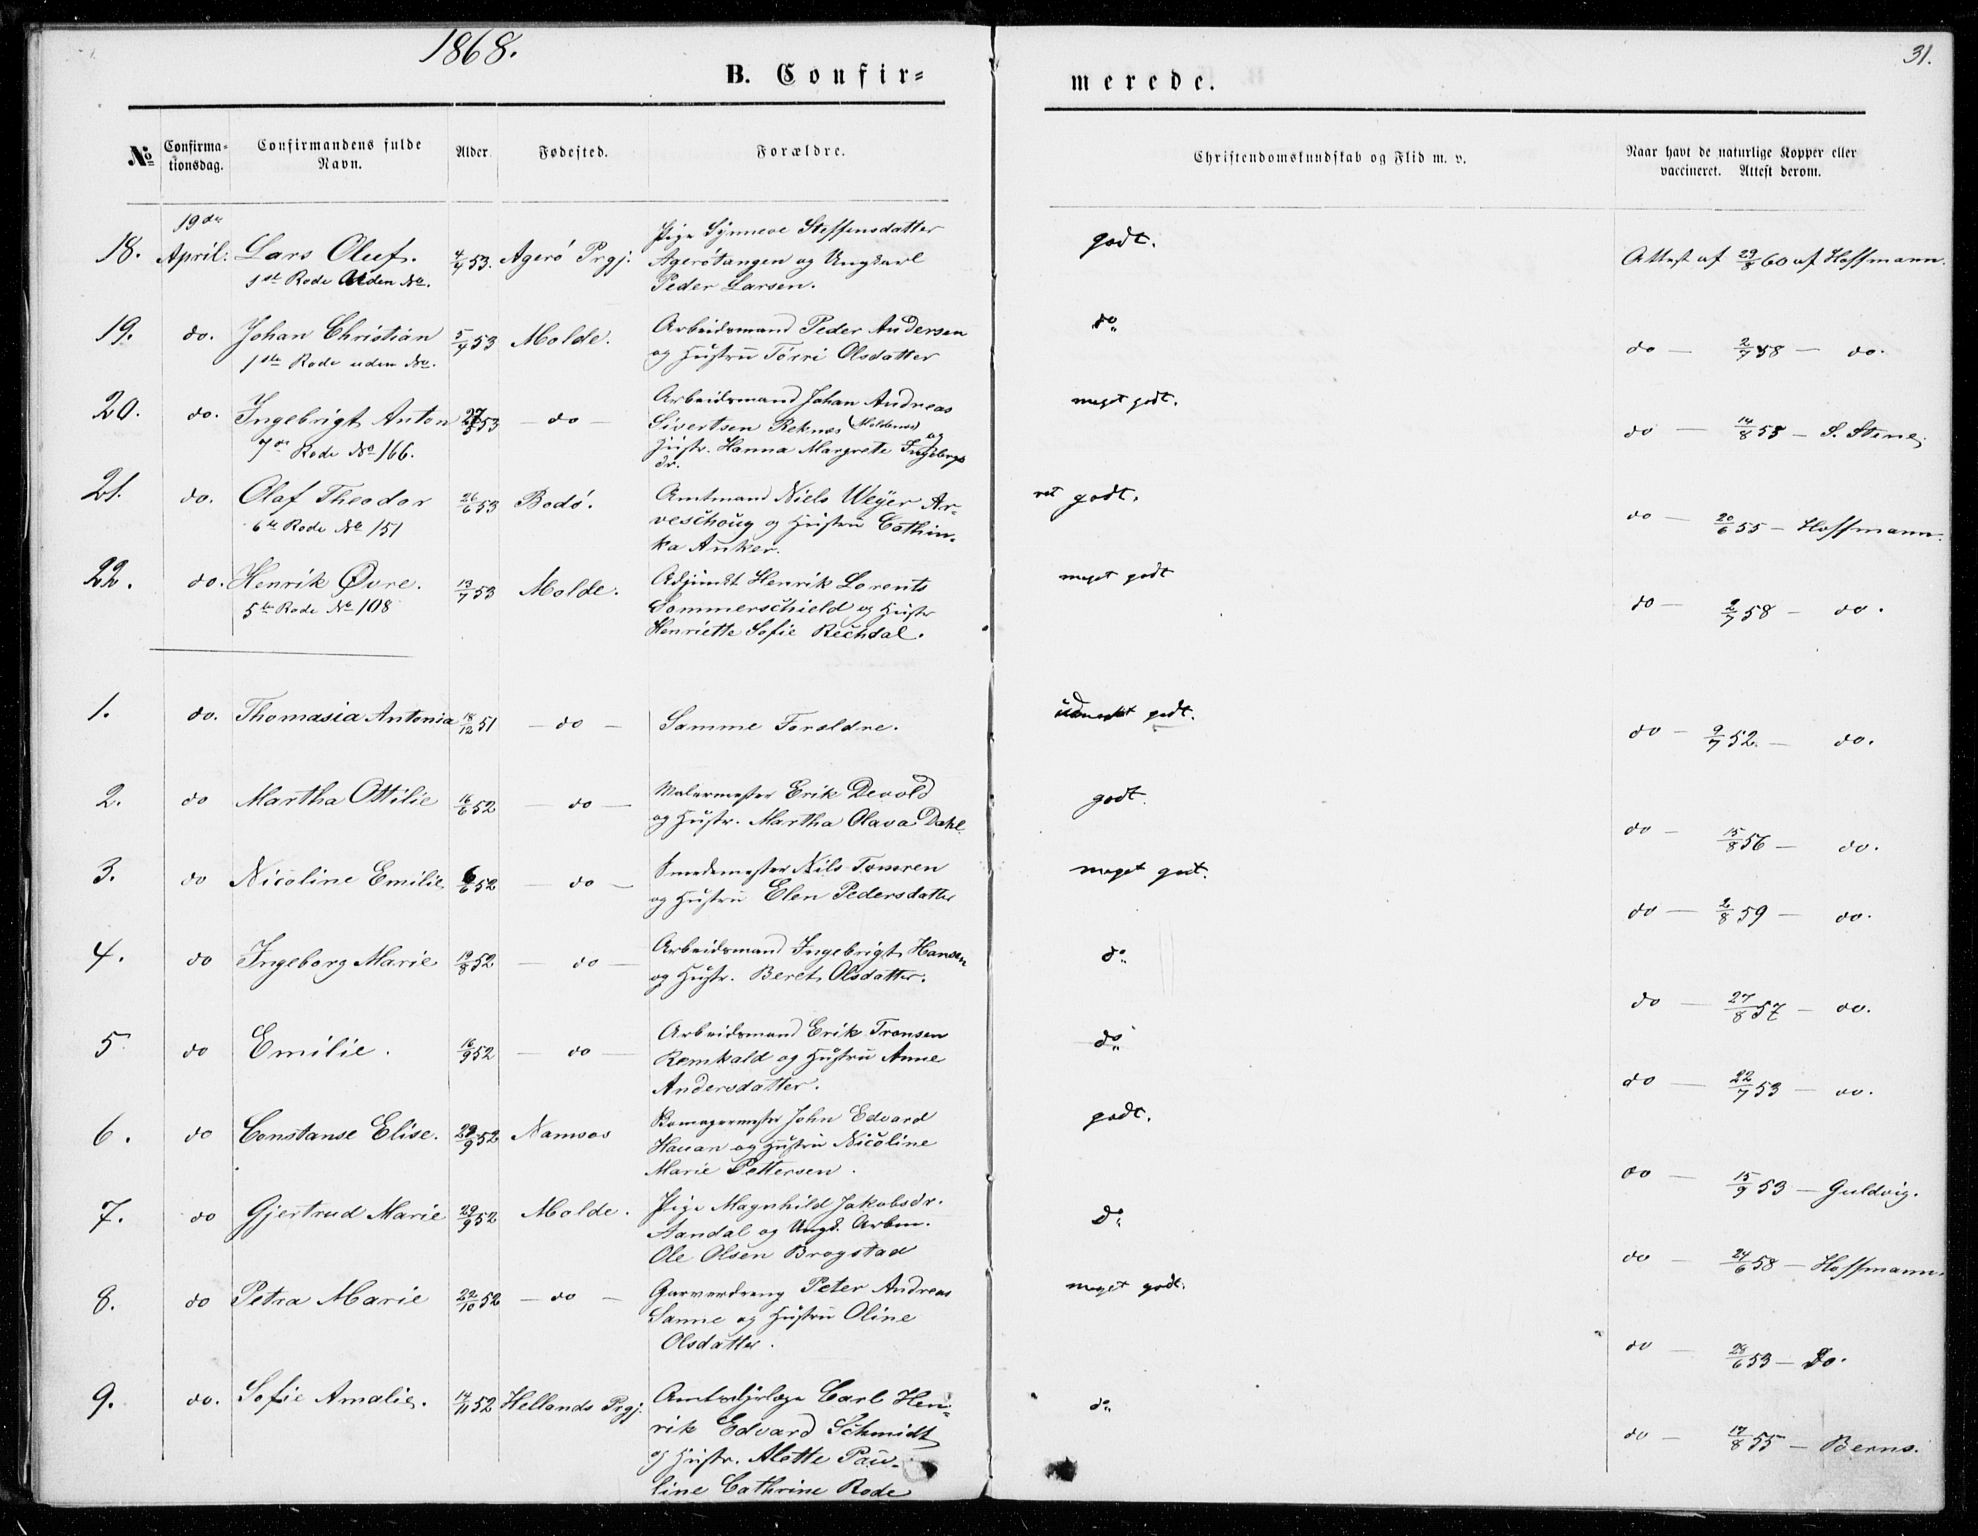 1868.
31.
B. Confir=
merede.
No
Confirma=
tionsdag.
Confirmandens fulde
Navn.
Alder.
Fødested.
Forældre.
Christendomskundskab og Flid m. v.
Naar havt de naturlige Kopper eller
vaccineret. Attest derom.
19de
18. April: Lars Oluf. 4/4 53. Agerø Prgj: Pige Synneve Steffensdatter
1ste Rode Uden No. Agerøtangen og Ungkarl
Peder Larsen.
godt. Attest af 29/8 60 af Hoffmann.
19. do. Johan Christian 5/4 53 Molde. Arbeidsmand Peder Andersen
1ste Rode uden No. og Hustru Törri Olsdatter
do do — 2/7 58 — do.
20. do. Ingebrigt Anton 53 — do — Arbeidsmand Johan Andreas
7de Rode No 166. Sivertsen Reknes (Moldenæs) og
Hustr. Hanna Margrete Ingebrgs
dr.
meget godt. do — 14/8 55 — S. Stene.
21. do. Olaf Theodor 26/6 53 Bodö. Amtmand Niels Weyer Ar-
6te Rode No 151 veschoug og Hustru Cathin-
ka Anker.
ret godt. do — 20/6 55 — Hoffmann.
22. do. Henrik Øvre. 13/7 53 Molde. Adjunct Henrik Lorents
5te Rode No 108 Sommerschield og Hustr
Henriette Sofie Rechdal.
meget godt do — 2/7 58 — do.
1. do. Thomasia Antonia 18/12 51 — do — Samme Forældre.
udmærket godt. do — 9/7 52. — do.
2. do Martha Ottilie 16/6 52 — do — Malermester Erik Devold
og Hustr. Martha Olava Dahl
godt. do — 15/8 56 — do.
3. do Nicoline Emilie 6/6 52 — do — Smedemester Nils Tomren
og Hustru Elen Pedersdatter
meget godt. do — 2/8 59 — do.
4. do Ingeborg Marie 19/8 52 — do — Arbeidsmand Ingebrigt Hansen
og Hustr. Beret Olsdatter.
do do — 27/8 57 — do.
5 do Emilie. 16/9 52 — do — Arbeidsmand Erik Tronsen
Remkald og Hustru Anne
Andersdatter.
do do — 22/7 53 — do.
6. do Constanse Elise. 29/9 52 Namsos John Edvard
Hauan og Hustru Nicoline
Marie Pettersen.
godt. do — 15/9 53 — Guldvig.
7. do Gjertrud Marie 29/9 52 Molde. Pige Magnhild Jakobsdr.
Aandal og Ungk. Arbm.
Ole Olsen Brogstad
do do — 24/6 58 — Hoffmann.
8. do Petra Marie 22/10 52 — do — Garverdreng Peter Andreas
Sanne og Hustru Oline
Olsdatter.
meget godt. do — 28/6 53 — Do.
9. do. Sofie Amalie. 14/11 52 Hellands Prgj. Carl Hen-
rik Edvard Schmidt
og Hustr. Alette Pau-
line Cathrine Rode
do do — 17/8 55 — Berns.